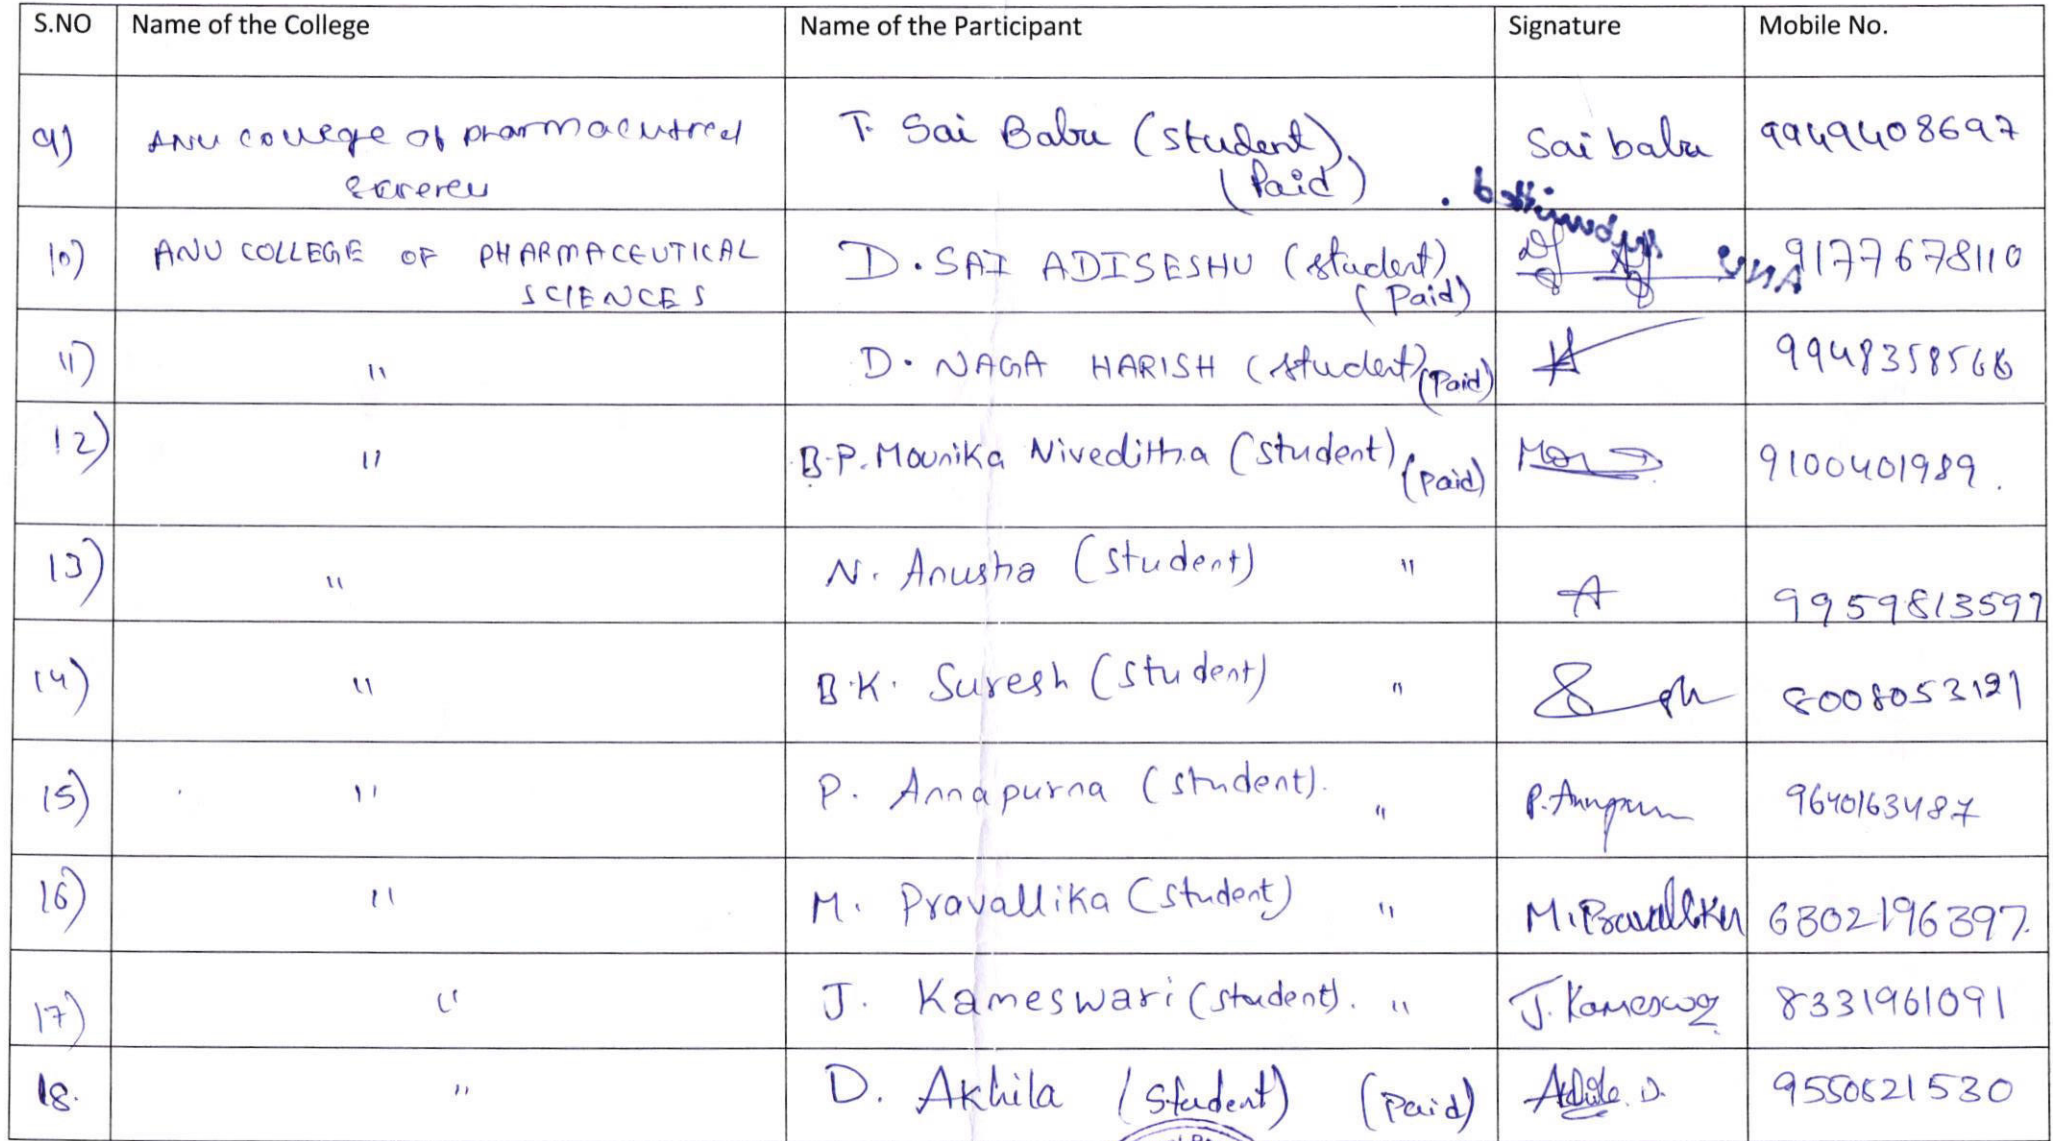 S.NO Name of the College Name of the Participant Signature Mobile No.
9) ANU college of pharmaceutical T. Sai Babu (student) Sai babu 9949408697
(Paid)
10) ANU COLLEGE OF PHARMACEUTICAL D. SAI ADISESHU (student) 9177678110
SCIENCES (Paid)
11) " D. NAGA HARISH (student) (Paid) 9948358566
12) " B.P. Mounika Niveditha (student) (Paid) 9100401989.
13) " N. Anusha (student) " A 9959813597
14) " B.K. Suresh (student) " 8008053121
15) " P. Annapurna (student). " P. Annapurn 9640163487
16) " M. Pravallika (student) " M. Pravallika 6302196397.
17) " J. Kameswari (student). " J. Kameswari 8331961091
18. " D. Akhila (Student) (Paid) Akhila. D. 9550621530